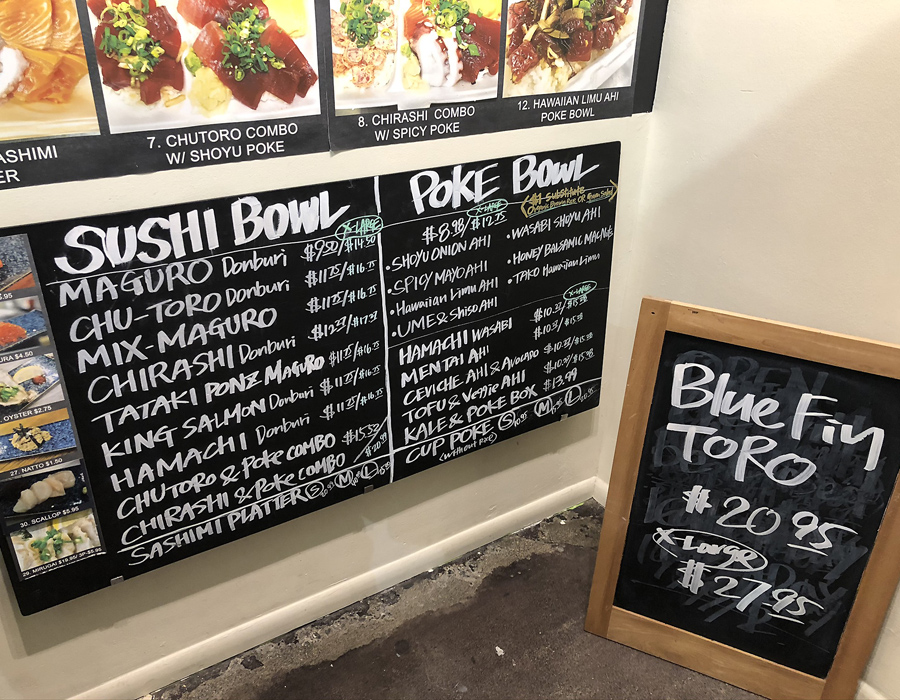 ASHIMI
ER
7. CHUTORO COMBO
W/ SHOYU POKE
8. CHIRASHI COMBO
W/ SPICY POKE
12. HAWAIIAN LIMU AHI
POKE BOWL
SUSHI BOWL
X-LARGE
MAGURO Donburi $9.50/$14.50
CHU-TORO Donburi $11.75/$16.75
MIX-MAGURO $11.75/$16.75
CHIRASHI Donburi $12.37/$17.37
TATAKI PONZ MAGURO $11.75/$16.75
KING SALMON Donburi $11.75/$16.75
HAMACHI Donburi $11.75/$16.75
CHUTORO & POKE COMBO $15.52
CHIRASHI & POKE COMBO
SASHIMI PLATTER S M L
POKE BOWL
Substitute
Organic Brown Rice OR Green Salad
$8.98 X-LARGE
SHOYU ONION AHI
SPICY MAYO AHI
Hawaiian Limu AHI
UME & Shiso AHI
WASABI SHOYU AHI
HONEY BALSAMIC
TAKO Hawaiian Limu
X-LARGE
HAMACHI WASABI
MENTAI AHI
CEVICHE AHI & Avocado
TOFU & Veggie AHI
KALE & POKE BOX $13.99
CUP POKE S M L
(without rice)
.95
URA $4.50
OYSTER $2.75
27. NATTO $1.50
30. SCALLOP $5.95
29. MIRUGAI $19.95/ 3P-$5.95
Blue Fin
TORO
$20.95
X-Large
$27.95